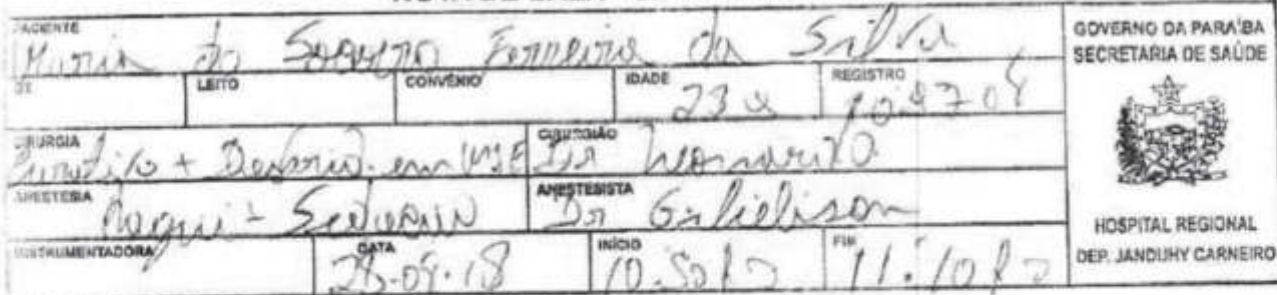 PACIENTE
Maria do Socorro Ferreira da Silva
LEITO
CONVÊNIO
IDADE
23 a
REGISTRO
CIRURGIA
Curativo + Desbrid. em MSE
CIRURGIÃO
Dr Leonardo
ANESTESIA
Raqui - Sedação
ANESTESISTA
Dr
INSTRUMENTADORA
DATA
INÍCIO
10:50 h
FIM
11:10 h
GOVERNO DA PARAÍBA
SECRETARIA DE SAÚDE
HOSPITAL REGIONAL
DEP. JANDUHY CARNEIRO